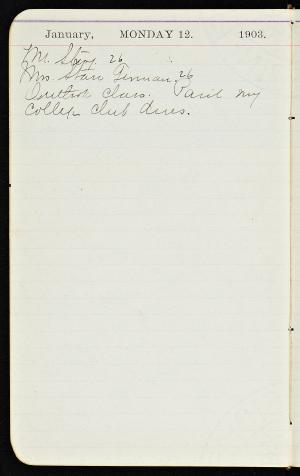 January, MONDAY 12. 1903.
M. 26
Mrs. Starr 26
Class. Paid my
College Club dues.